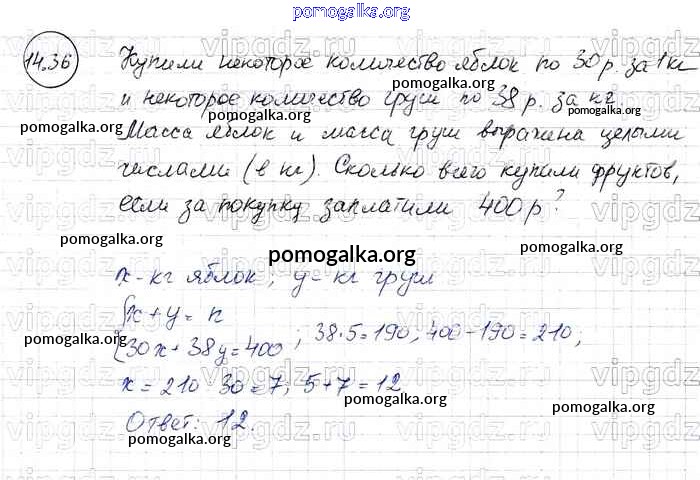 pomogalka.org
14.36 Купили некоторое количество яблок по 30 р. за 1 кг
pomogalka.org
и некоторое количество груш по 38 р. за кг.
pomogalka.org
Масса яблок и масса груш выражена целыми
числами (в кг). Сколько всего купили фруктов,
pomogalka.org
если за покупку заплатили 400 р?
pomogalka.org
pomogalka.org
pomogalka.org
x - кг яблок; y - кг груш
{x + y = n
30x + 38y = 400 ; 38·5 = 190, 400 - 190 = 210;
pomogalka.org
pomogalka.org
x = 210 : 30 = 7; 5 + 7 = 12
pomogalka.org
pomogalka.org
Ответ: 12.
pomogalka.org
vipgdz